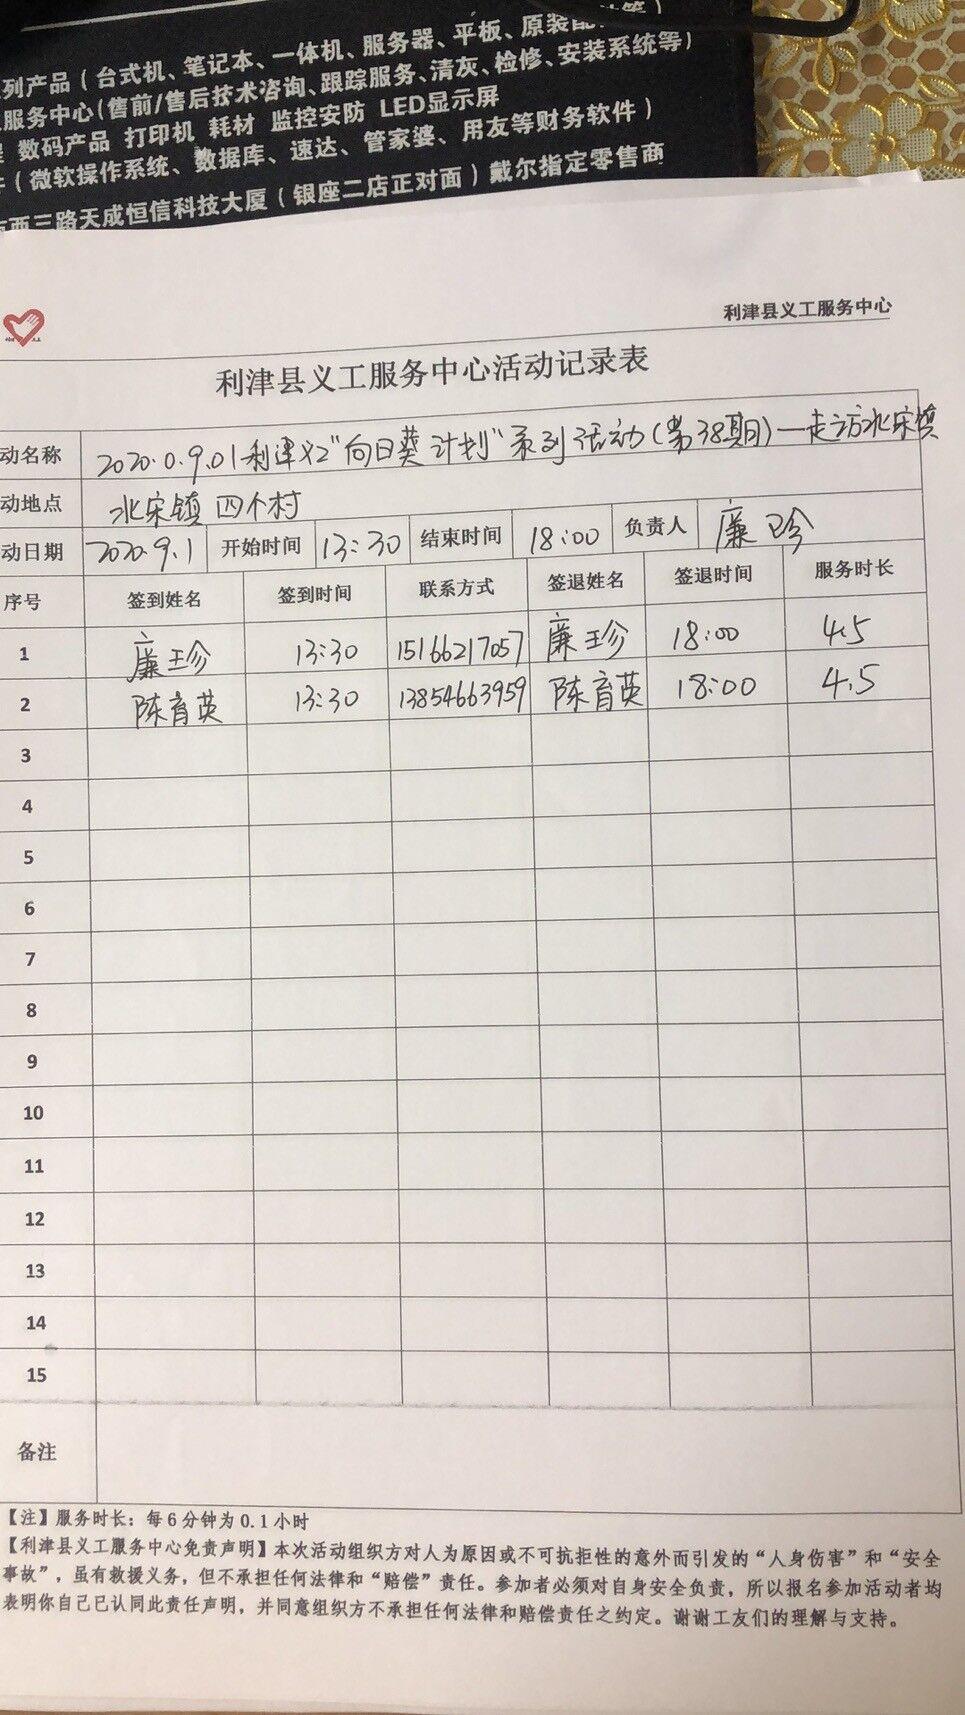 列产品（台式机、笔记本、一体机、服务器、平板、原装配
服务中心（售前/售后技术咨询、跟踪服务、清灰、检修、安装系统等）
数码产品 打印机 耗材 监控安防 LED显示屏
（微软操作系统、数据库、速达、管家婆、用友等财务软件）
西三路天成恒信科技大厦（银座二店正对面）戴尔指定零售商
利津县义工服务中心
利津县义工服务中心活动记录表
动名称 2020.0.9.01利津义工"向日葵计划"系列活动(第38期)—走访北宋镇
动地点 北宋镇 四个村
动日期 2020.9.1 开始时间 13:30 结束时间 18:00 负责人 廉珍
序号 签到姓名 签到时间 联系方式 签退姓名 签退时间 服务时长
1 廉珍 13:30 15166217057 廉珍 18:00 4.5
2 陈育英 13:30 13854663959 陈育英 18:00 4.5
3
4
5
6
7
8
9
10
11
12
13
14
15
备注
【注】服务时长：每6分钟为0.1小时
【利津县义工服务中心免责声明】本次活动组织方对人为原因或不可抗拒性的意外而引发的“人身伤害”和“安全
事故”，虽有救援义务，但不承担任何法律和“赔偿”责任。参加者必须对自身安全负责，所以报名参加活动者均
表明你自己已认同此责任声明，并同意组织方不承担任何法律和赔偿责任之约定。谢谢工友们的理解与支持。